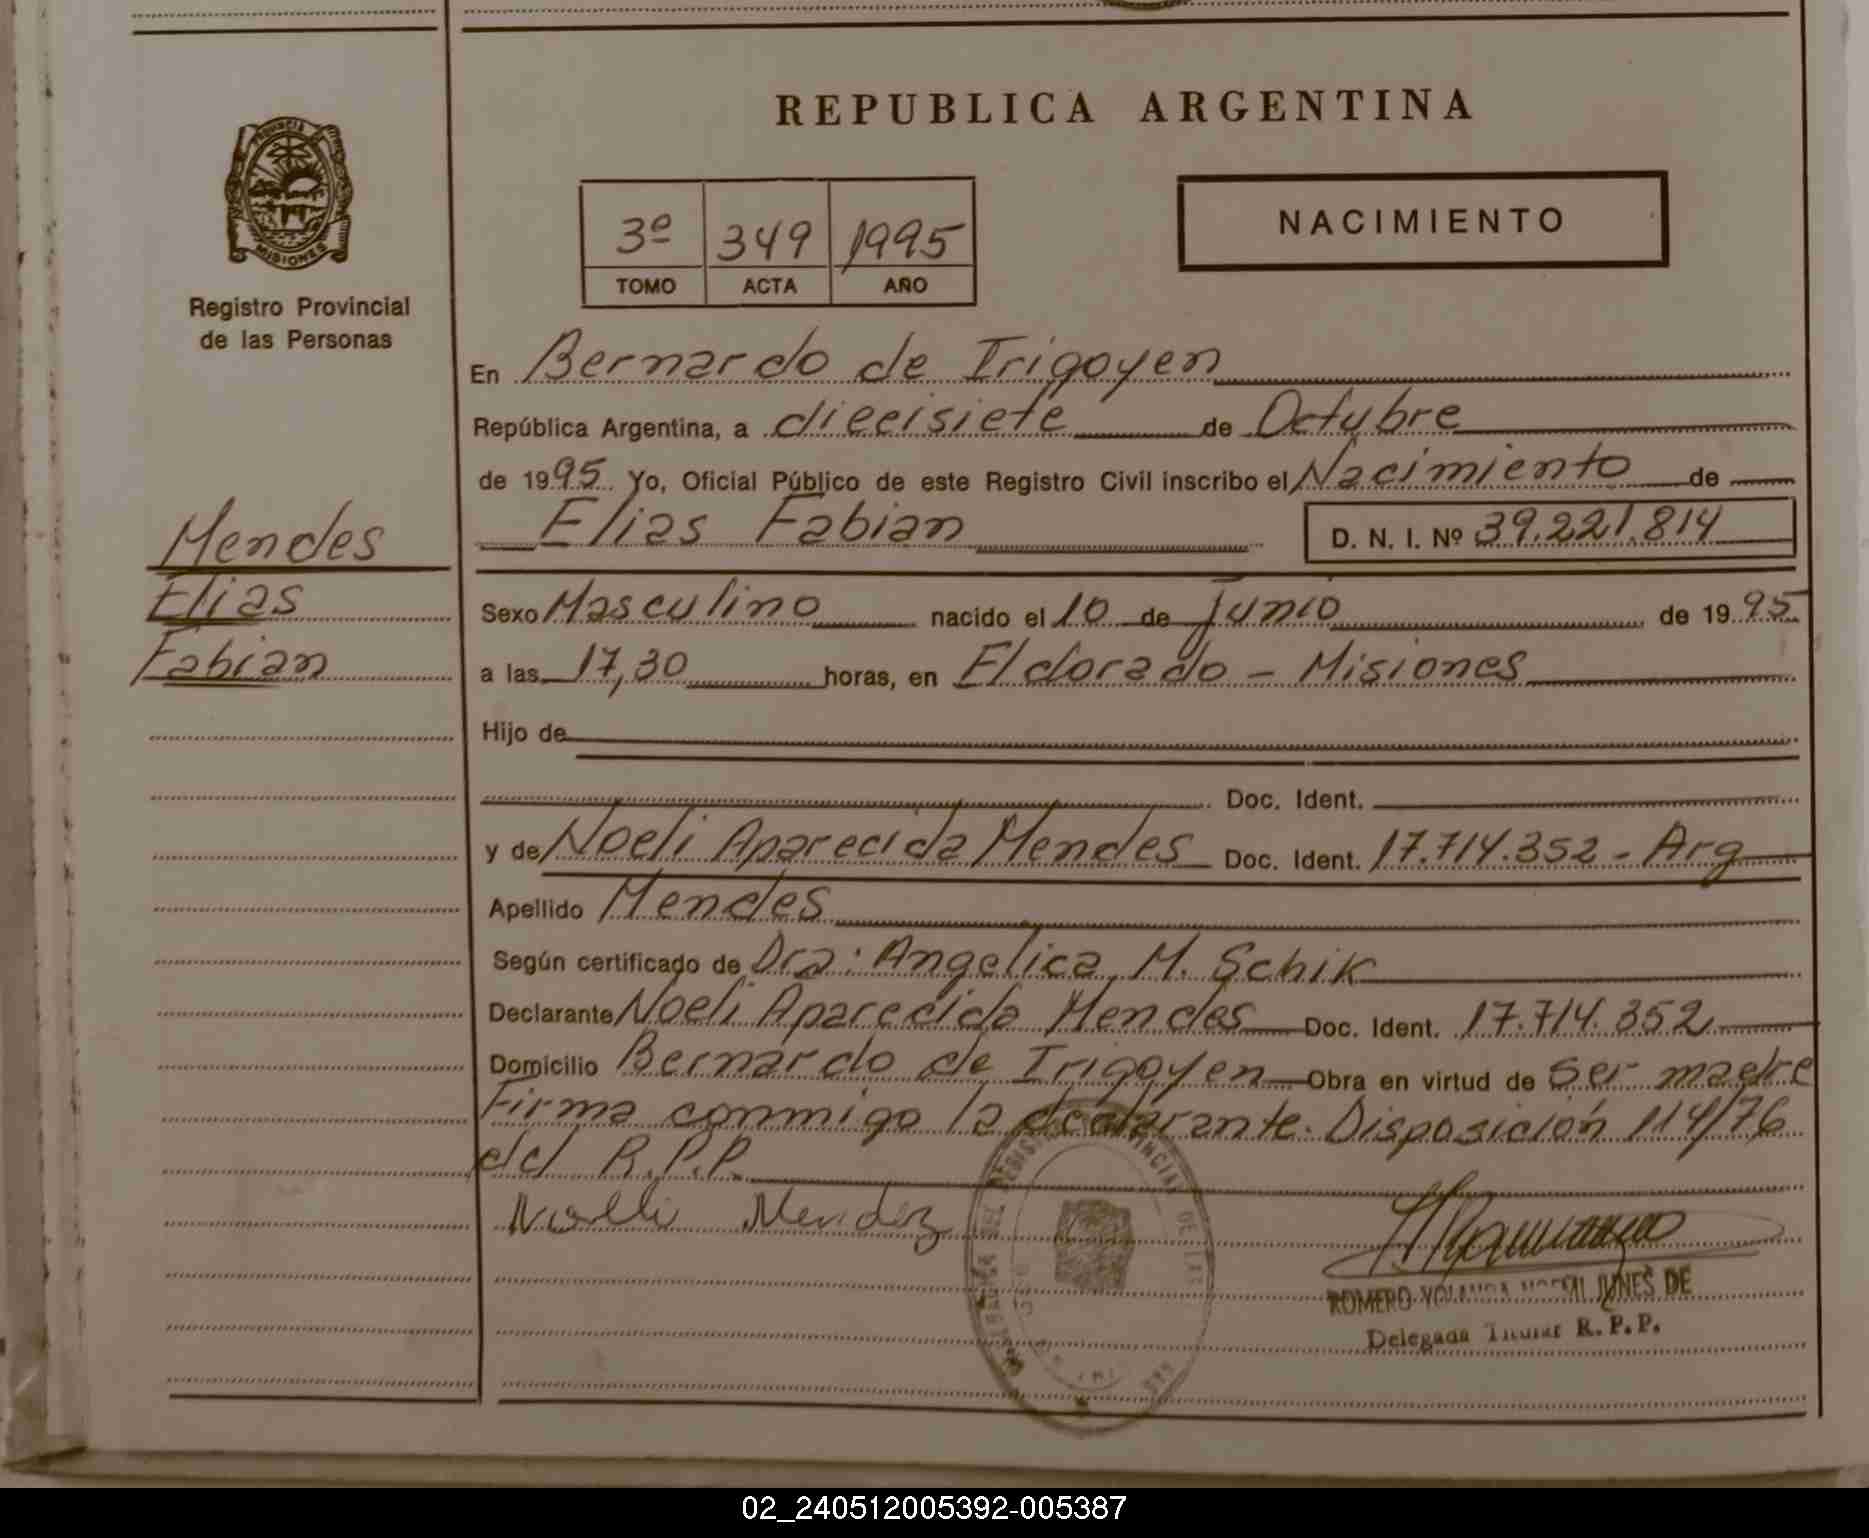 REPUBLICA ARGENTINA
PROVINCIA
MISIONES
Registro Provincial
de las Personas
3º 349 1995
TOMO ACTA AÑO
NACIMIENTO
En Bernardo de Irigoyen
República Argentina, a diecisiete de Octubre
de 1995 Yo, Oficial Público de este Registro Civil inscribo el Nacimiento de
Elias Fabian D. N. I. Nº 39.221.814
Mendes
Elias
Fabian
Sexo Masculino nacido el 10 de Junio de 1995
a las 17,30 horas, en Eldorado - Misiones
Hijo de
Doc. Ident.
y de Noeli Aparecida Mendes Doc. Ident. 17.714.352 - Arg
Apellido Mendes
Según certificado de Dra: Angelica M. Schik
Declarante Noeli Aparecida Mendes Doc. Ident. 17.714.352
Domicilio Bernardo de Irigoyen Obra en virtud de ser madre
Firma conmigo la declarante. Disposición 114/76
del R.P.P.
Noelli Mendez
ROMERO YOLANDA NOEMI JUNES DE
Delegada Titular R.P.P.
02_240512005392-005387